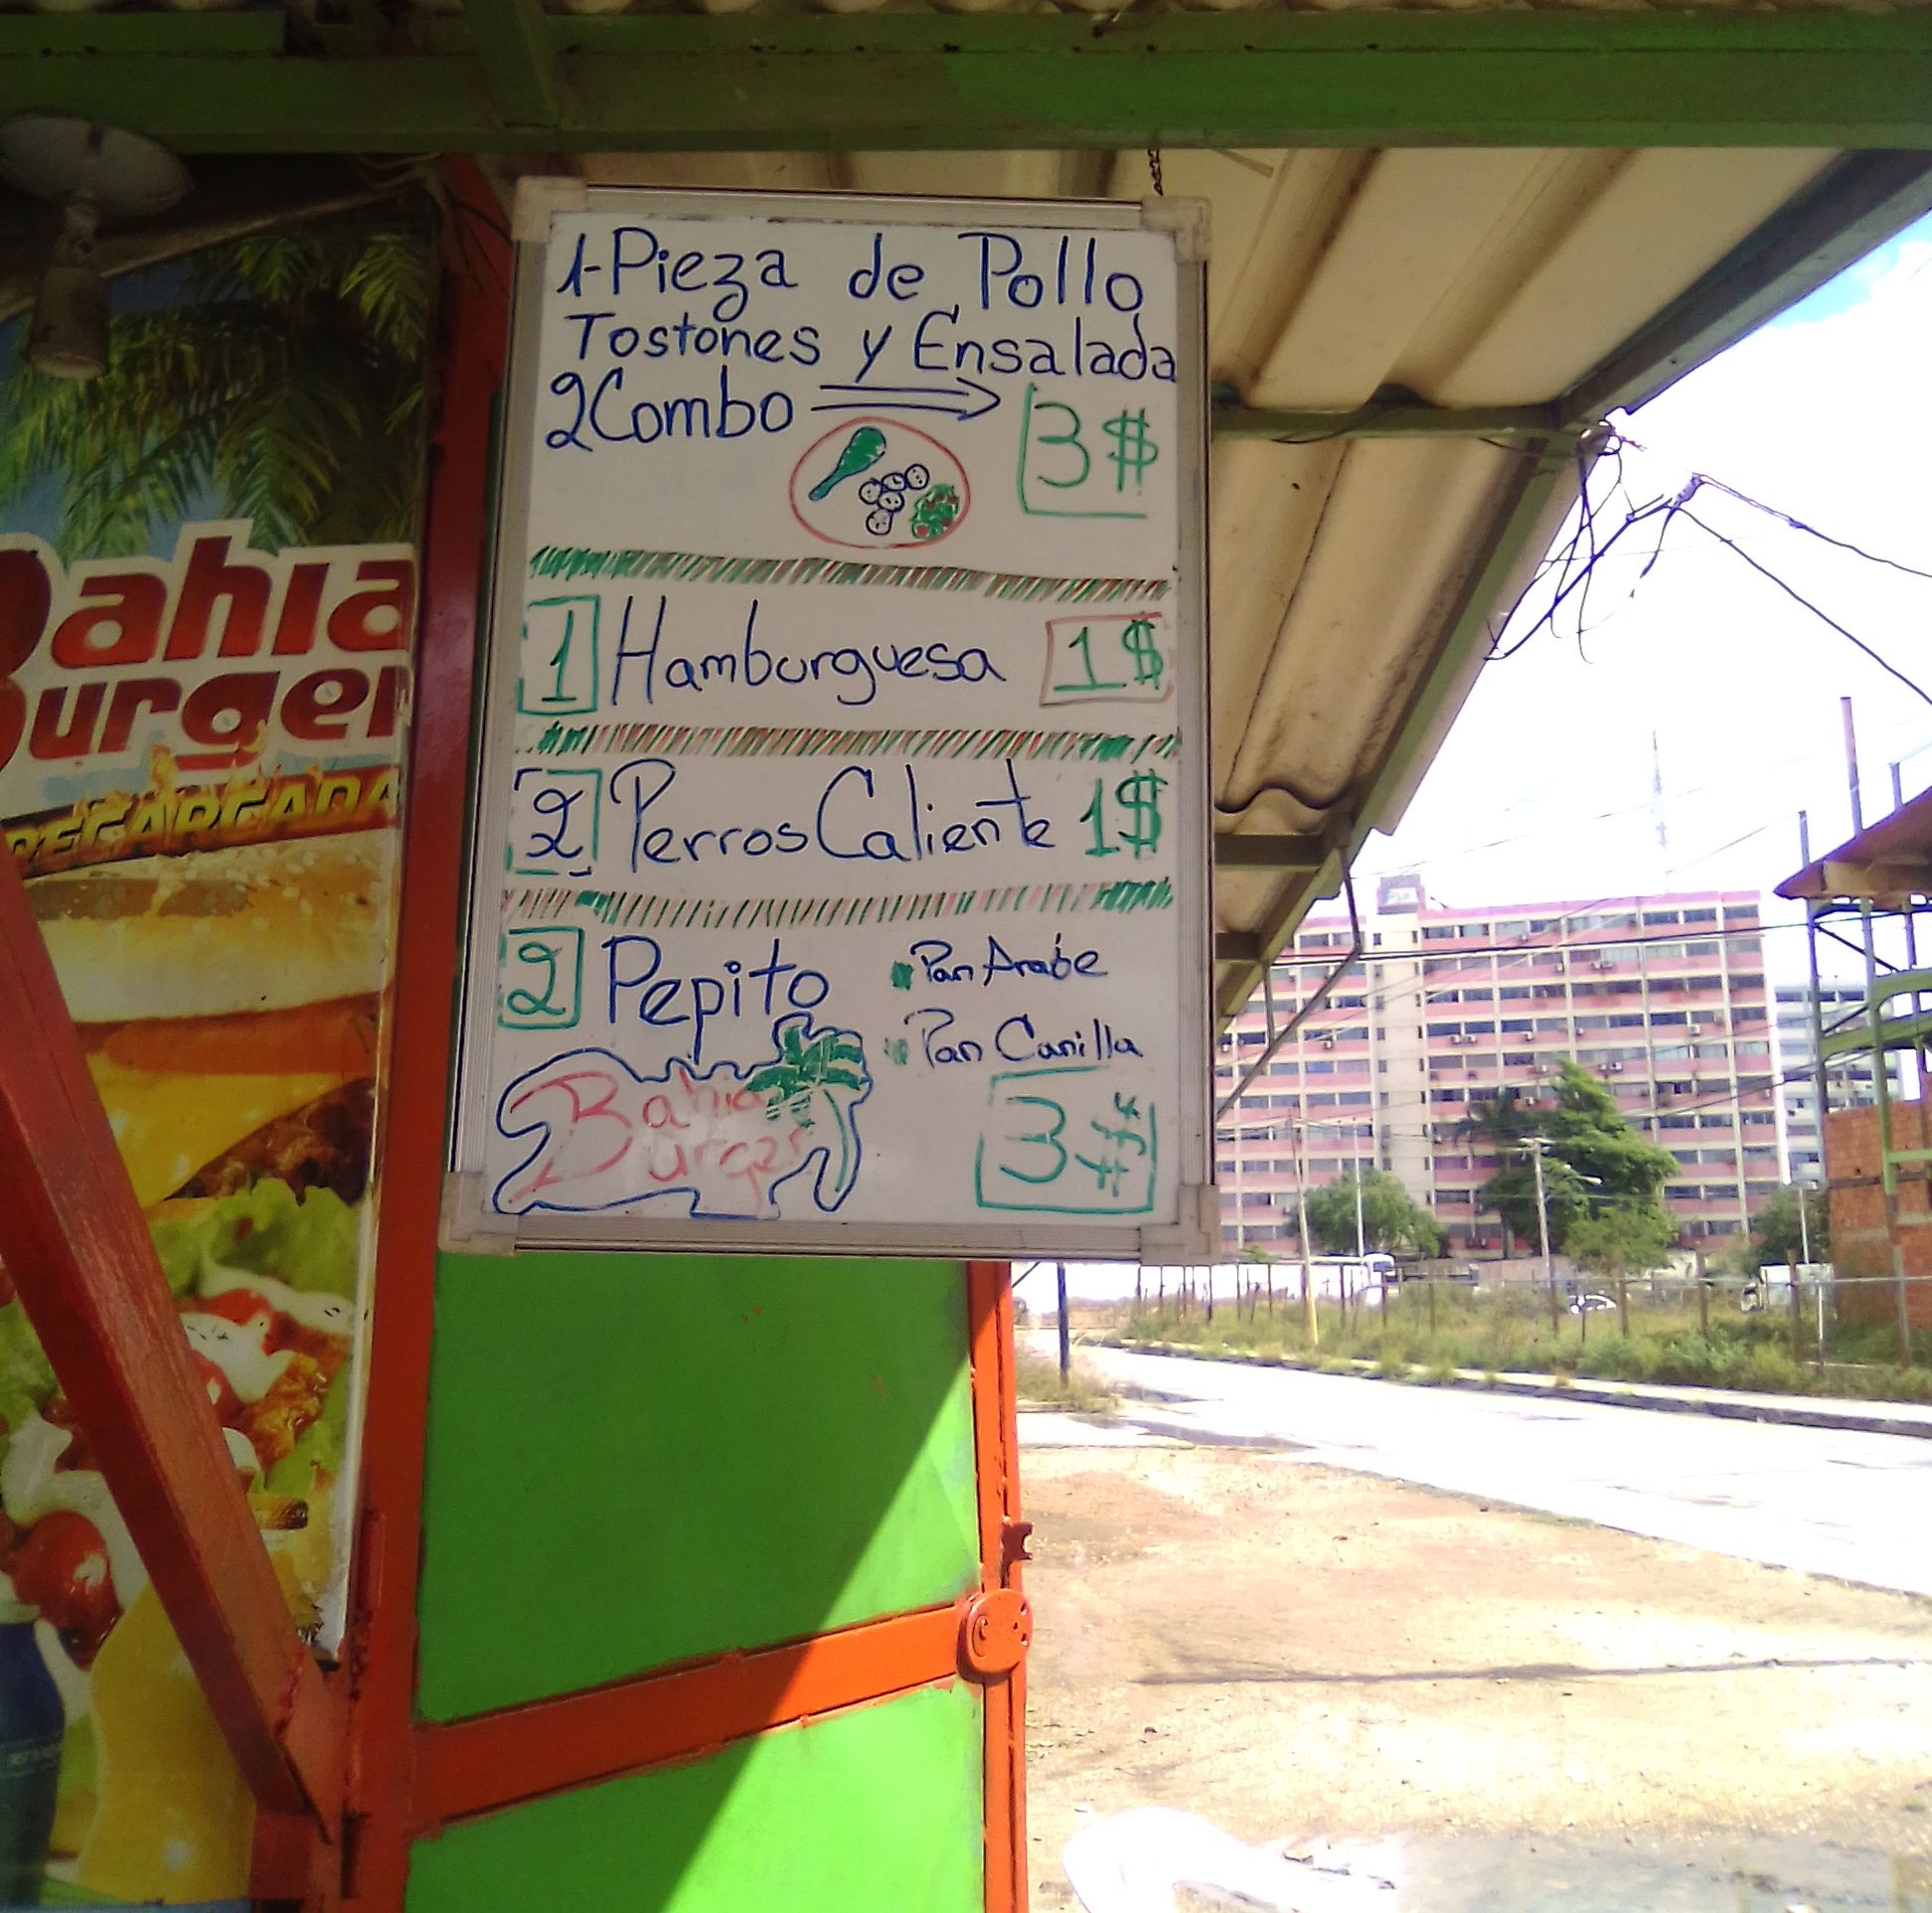 1-Pieza de Pollo
Tostones y Ensalada
2 Combo
3$
1 Hamburguesa 1$
2 Perros Caliente 1$
2 Pepito
Pan Arabe
Pan Canilla
3$
Bahia
Burger
Bahia
Burger
RECARGADA